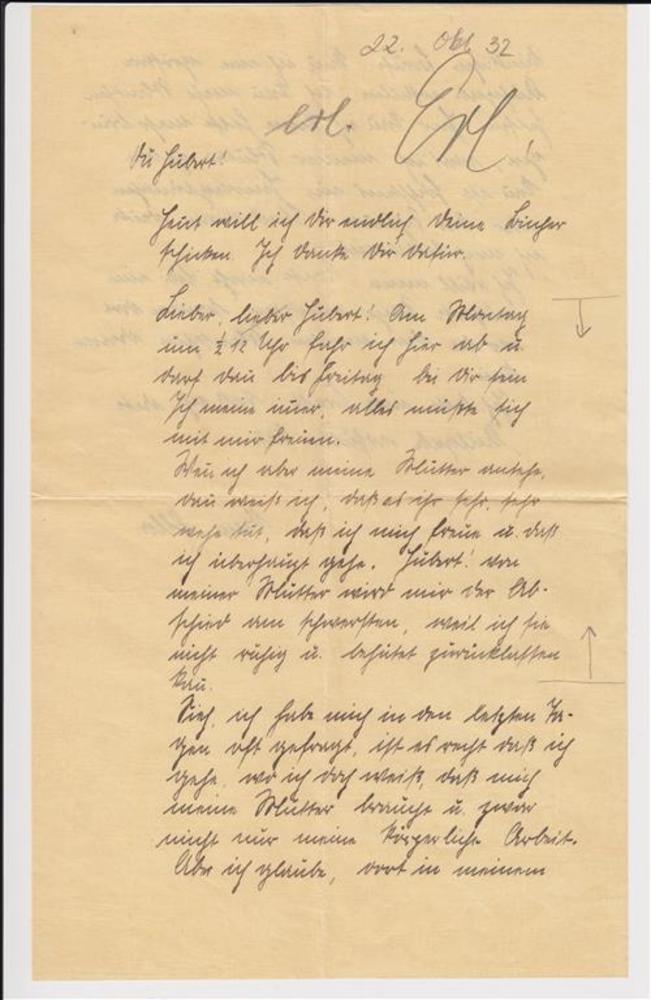 22. Okt 32
erl. Erl!
Du Hubert!
Heut will ich Dir endlich Deine Bücher
schicken. Ich danke Dir dafür.
Lieber, lieber Hubert! Am Montag
um ½ 12 Uhr fahr ich hier ab u.
darf dan bis Freitag bei Dir sein
Ich meine imer, alles müßte sich
mit mir freuen.
Wen ich aber meine Mutter ansehe,
dan weiß ich, daß es ihr sehr, sehr
wehe tut, daß ich mich freue u. daß
ich überhaupt gehe. Hubert! von
meiner Mutter wird mir der Ab-
schied am schwersten, weil ich sie
nicht ruhig u. behütet zurücklassen
kan.
Sieh, ich habe mich in den letzten Ta-
gen oft gefragt, ist es recht daß ich
gehe, wo ich doch weiß, daß mich
meine Mutter braucht u. zwar
nicht nur meine körperliche Arbeit.
Aber ich glaube, dort in meinem